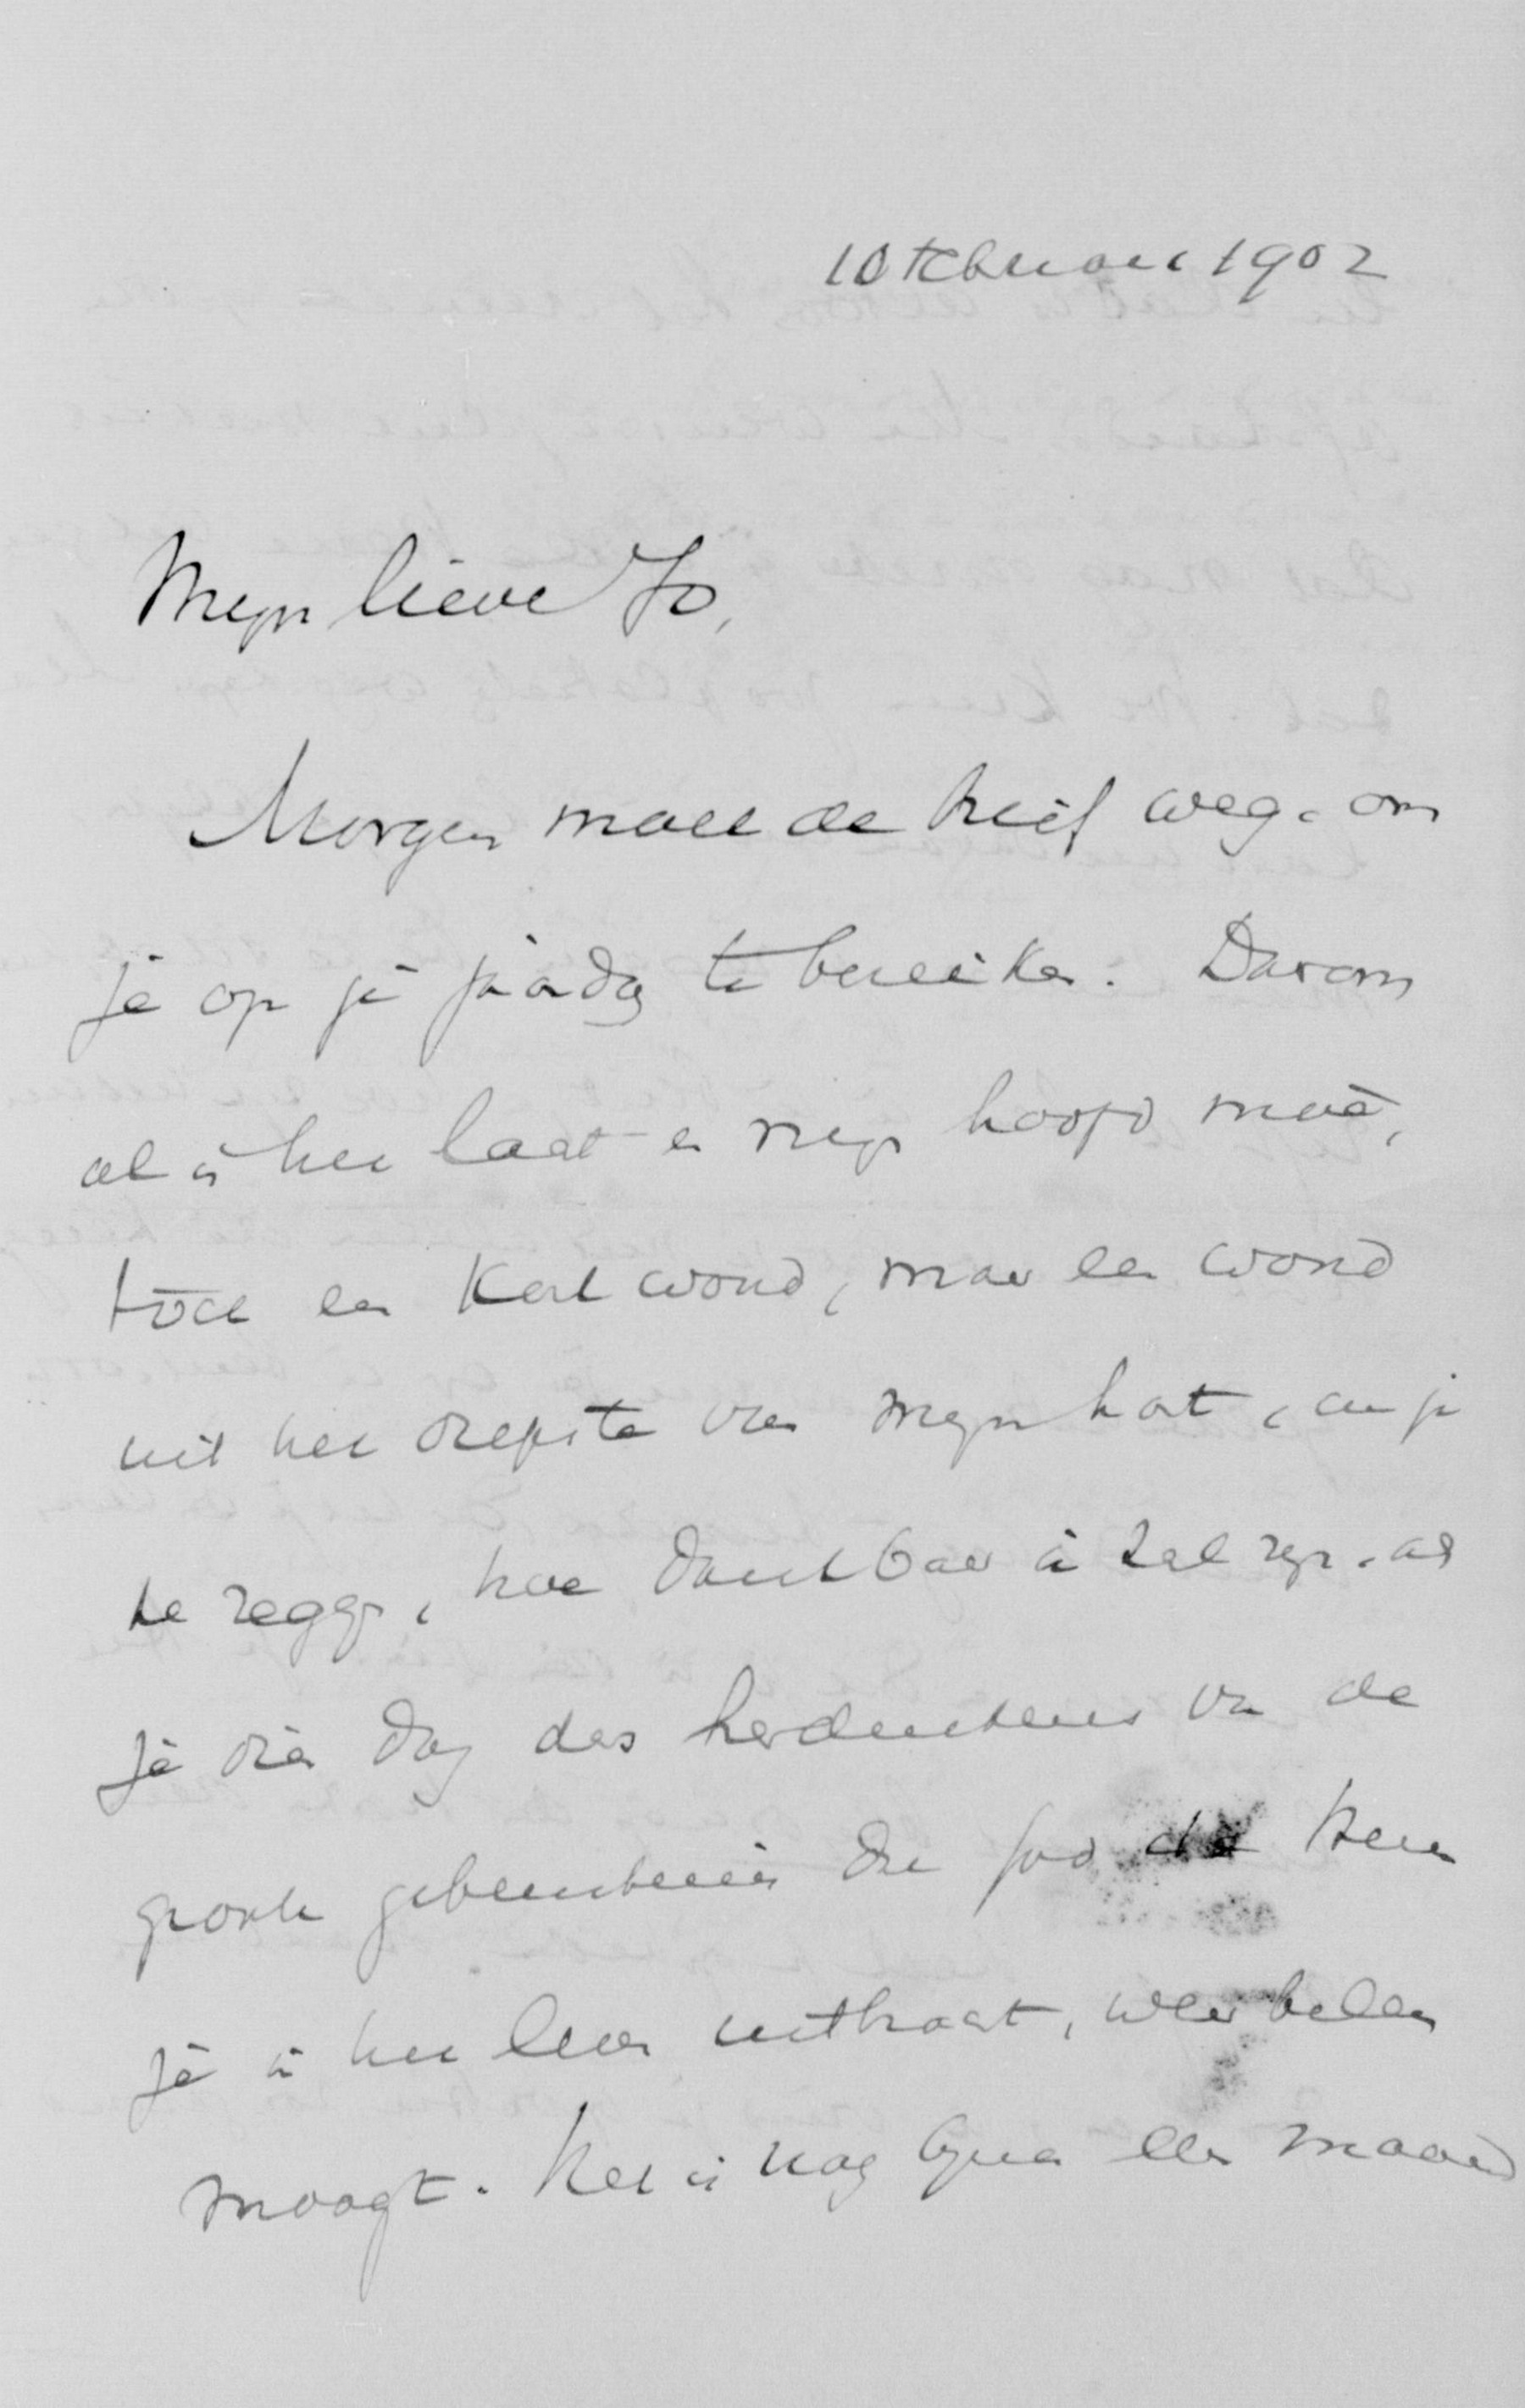 10 Februari 1902
Mijn lieve Jo,
Morgen moet de brief weg, om
je op je jaardag te bereiken. Darom
al is het laat en mijn hoofd moe,
toch een kort woord, maar een woord
uit het diepste van mijn hart, om je
te zeggen, hoe dankbaar ik zal zijn, als
je die dag des herdenkens van de
groote gebeurtenis die God
je in het leven uitbracht, weer beleven
moogt. Het is nog bijna een maand